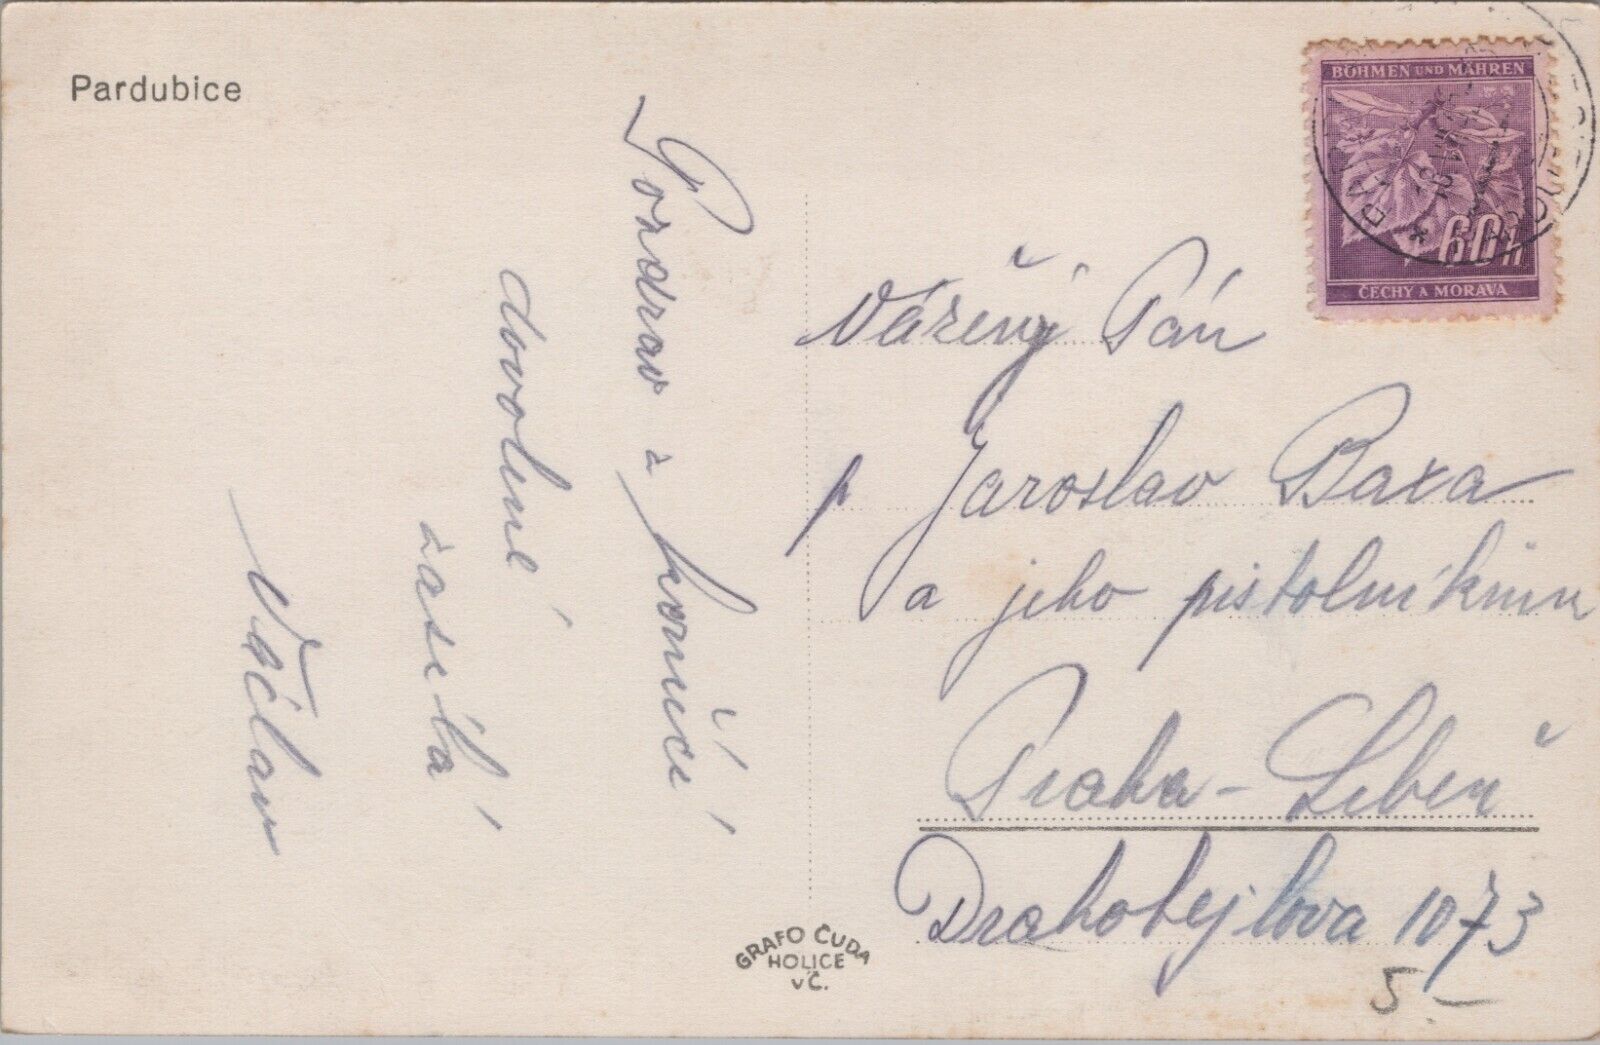 Pardubice
Pozdrav z
dovolené
zasílá
Václav
BÖHMEN UND MÄHREN
60h
ČECHY A MORAVA
Vážený Pán
p Jaroslav Baxa
a jeho
Praha - Libeň
Drahobejlova 1073
5.-
GRAFO ČUDA
HOLICE
v Č.